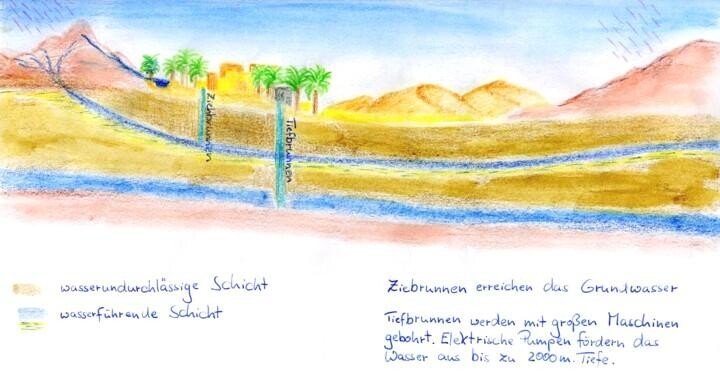 Ziehbrunnen
Tiefbrunnen
wasserundurchlässige Schicht
wasserführende Schicht
Ziebrunnen erreichen das Grundwasser
Tiefbrunnen werden mit großen Maschinen
gebohrt. Elektrische Pumpen fördern das
Wasser aus bis zu 2000 m. Tiefe.